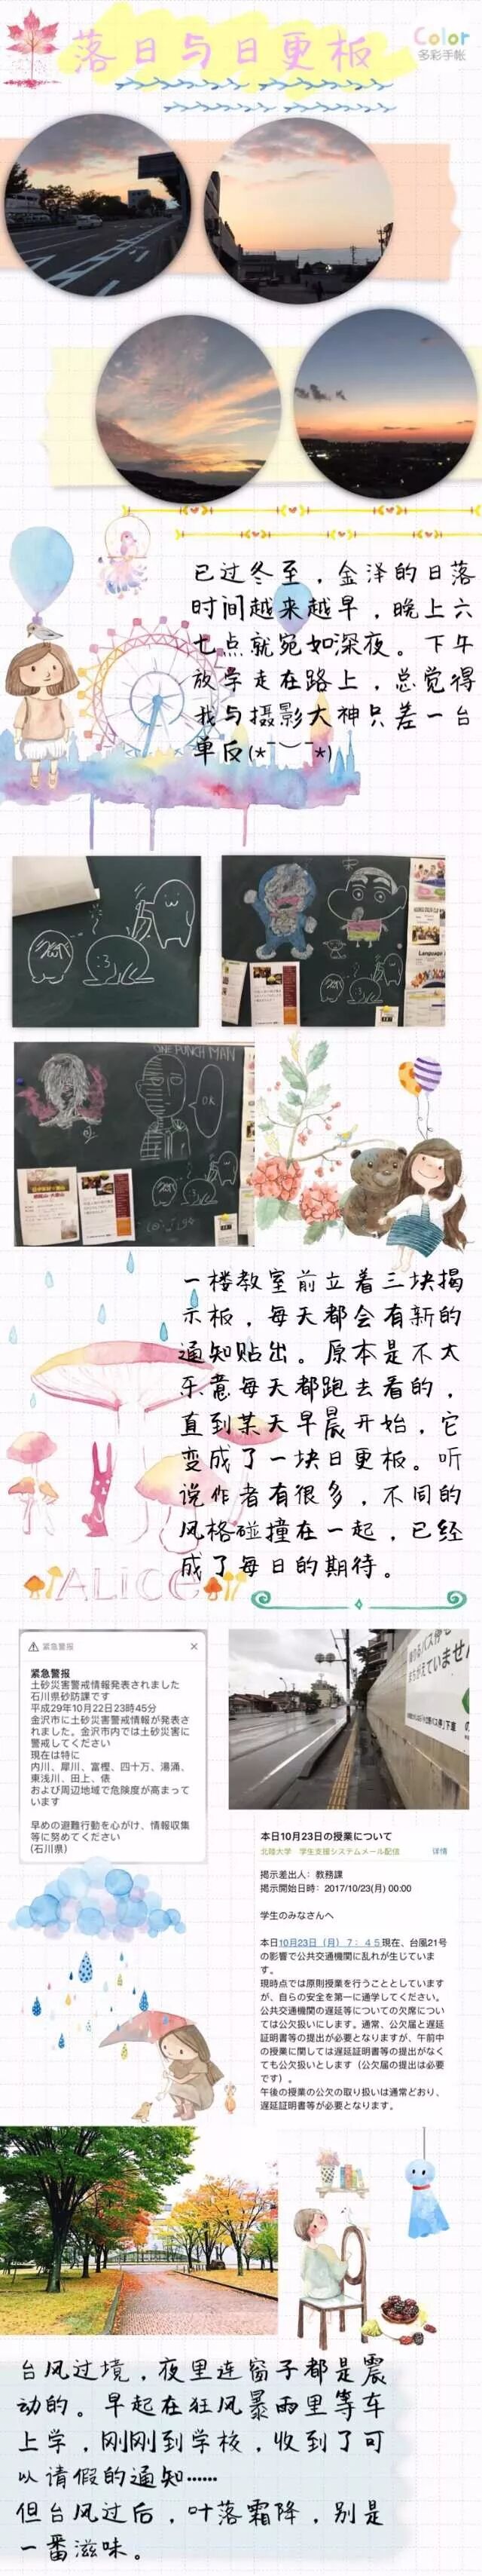 落日与日更板
Color
多彩手帐
已过冬至，金泽的日落
时间越来越早，晚上六
七点就宛如深夜。下午
放学走在路上，总觉得
我与摄影大神只差一台
单反(*¯︶¯*)
ONE PUNCH MAN
OK
一楼教室前立着三块揭
示板，每天都会有新的
通知贴出。原本是不太
乐意每天都跑去看的，
直到某天早晨开始，它
变成了一块日更板。听
说作者有很多，不同的
风格碰撞在一起，已经
成了每日的期待。
ALICE
緊急警報
緊急警報
土砂災害警戒情報発表されました
石川県砂防課です
平成29年10月22日23時45分
金沢市に土砂災害警戒情報が発表さ
れました。金沢市内では土砂災害に
警戒してください
現在は特に
内川、犀川、富樫、四十万、湯涌、
東浅川、田上、俵
および周辺地域で危険度が高まって
います
早めの避難行動を心がけ、情報収集
等に努めてください
(石川県)
本日10月23日の授業について
北陸大学　学生支援システムメール配信
详情
掲示差出人：教務課
掲示開始日時：2017/10/23(月) 00:00
学生のみなさんへ
本日10月23日（月）７：４５現在、台風21号
の影響で公共交通機関に乱れが生じていま
す。
現時点では原則授業を行うこととしています
が、自らの安全を第一に通学してください。
公共交通機関の遅延等についての欠席につい
ては公欠扱いにします。通常、公欠届と遅延
証明書等の提出が必要となりますが、午前中
の授業に関しては遅延証明書等の提出がなく
ても公欠扱いとします（公欠届の提出は必要
です）。
午後の授業の公欠の取り扱いは通常どおり、
遅延証明書等が必要となります。
台风过境，夜里连窗子都是震
动的。早起在狂风暴雨里等车
上学，刚刚到学校，收到了可
以请假的通知……
但台风过后，叶落霜降，别是
一番滋味。